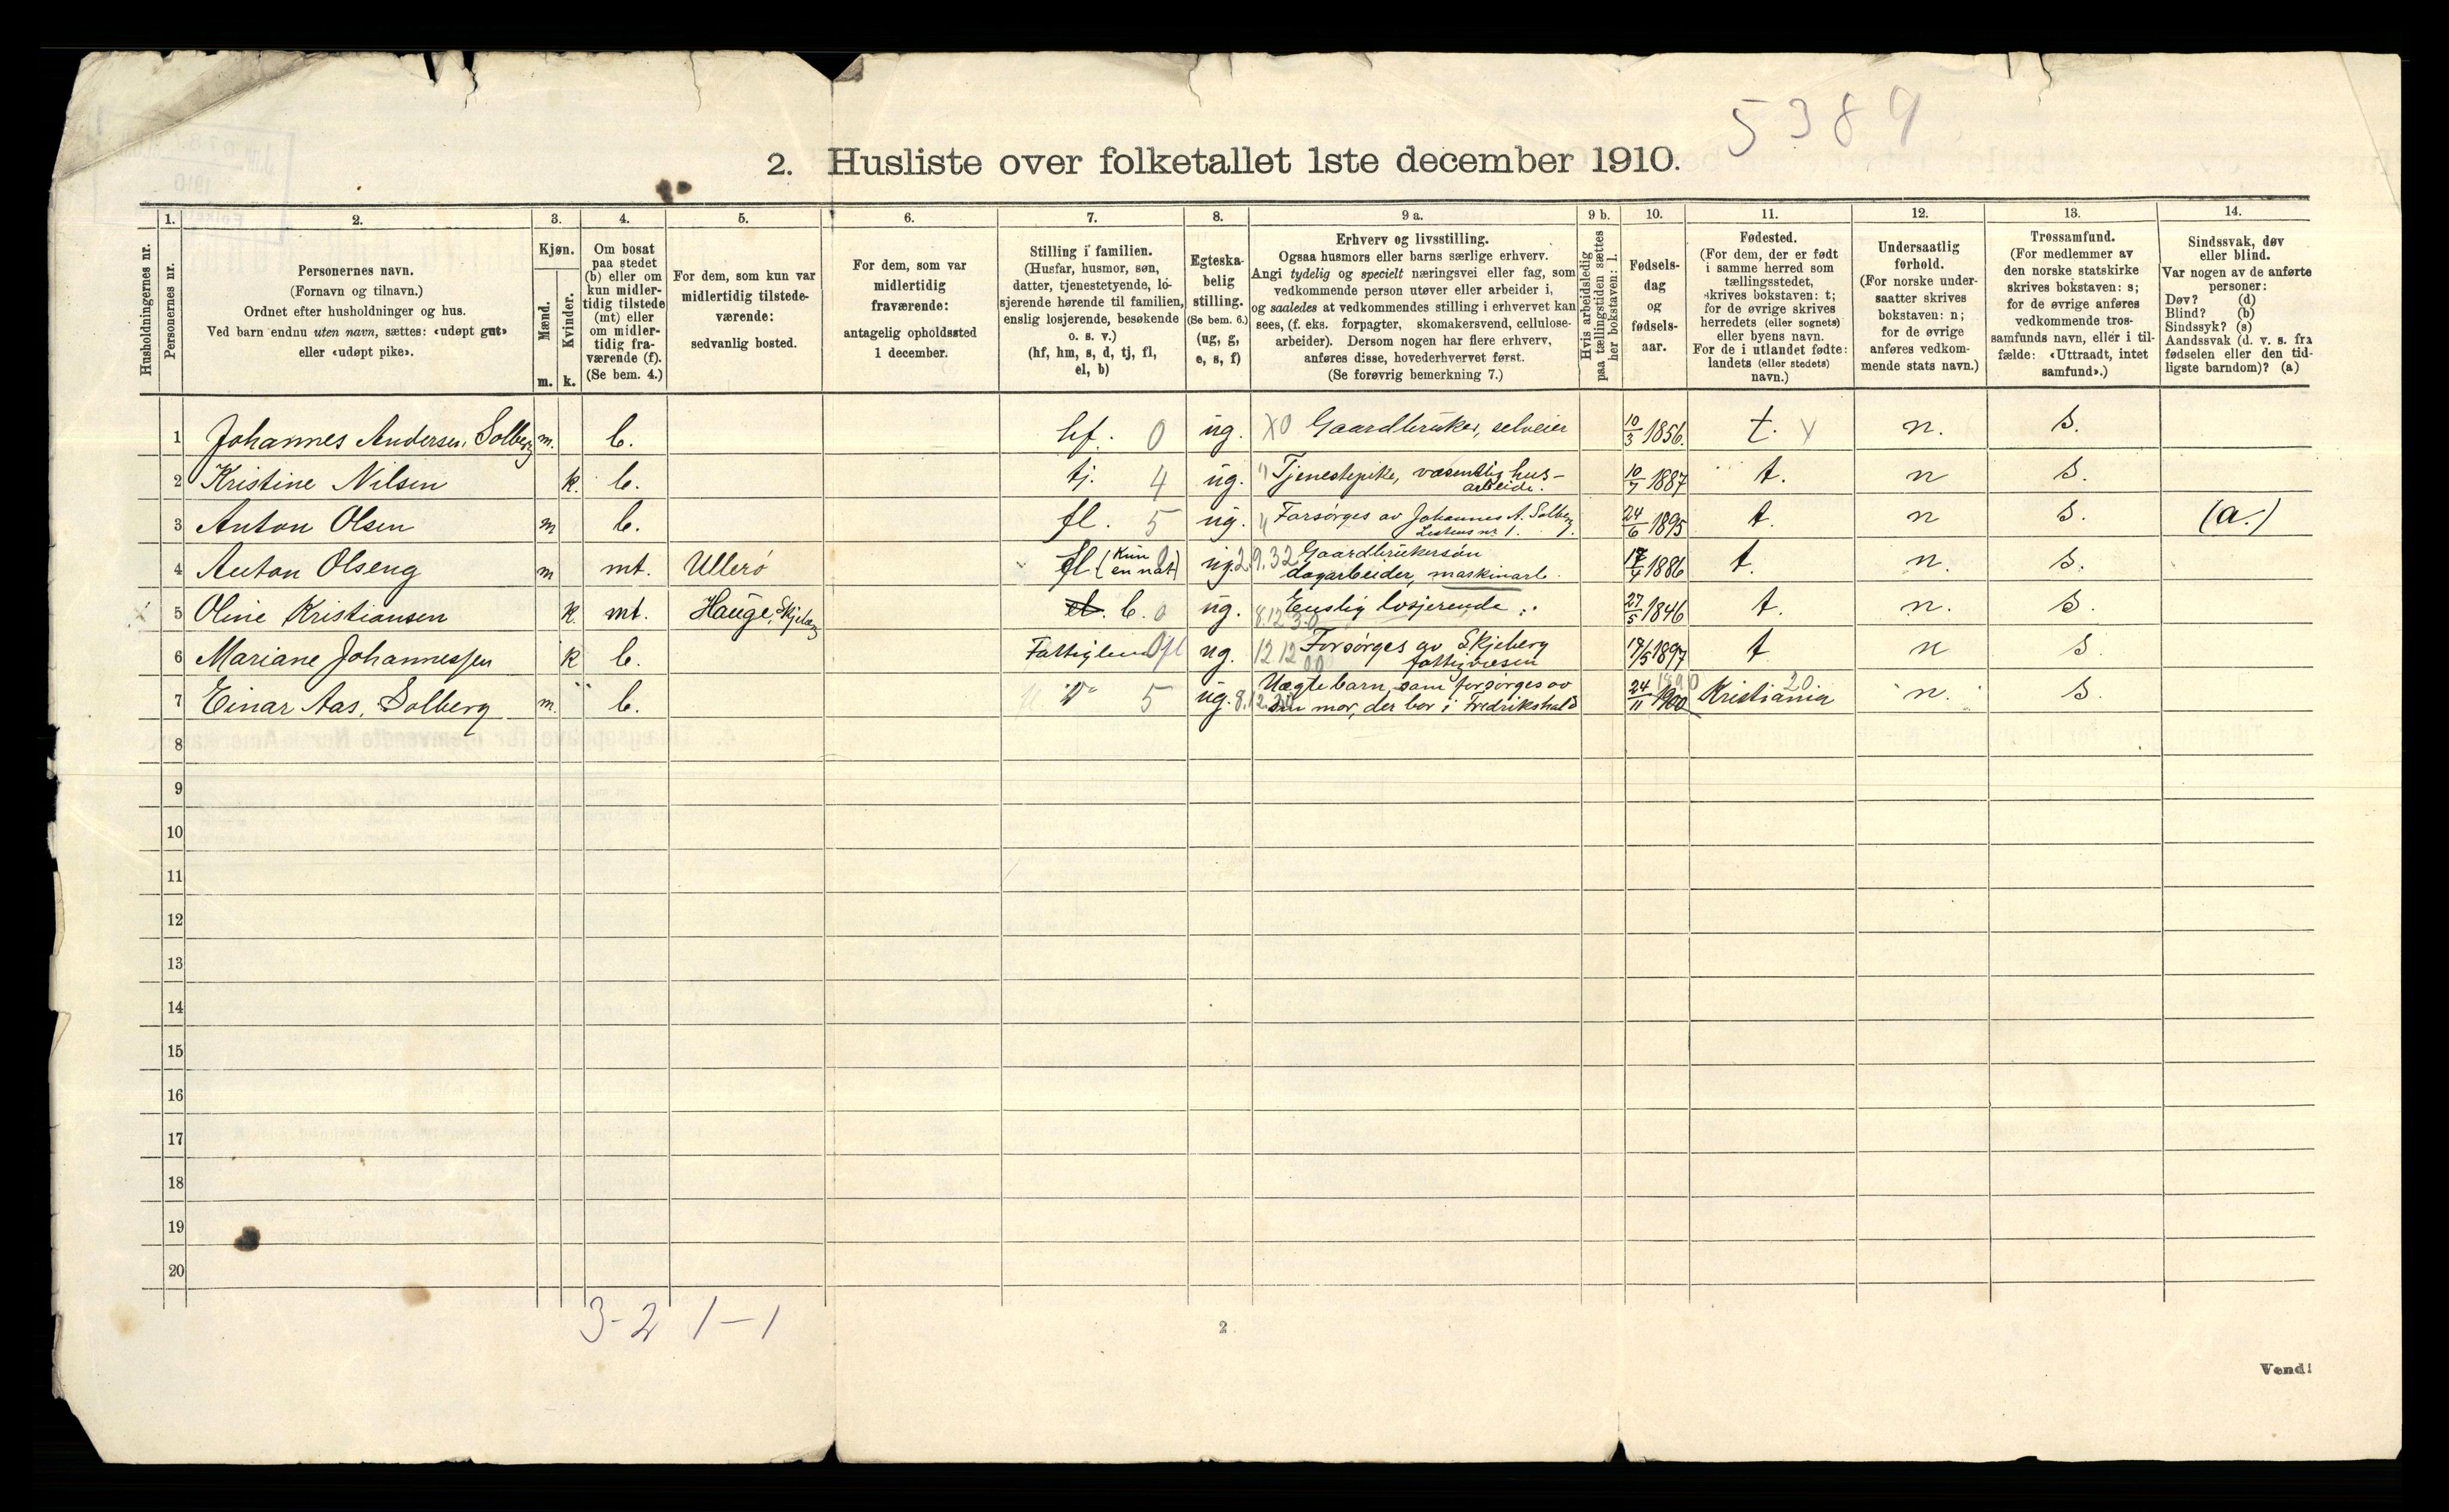 5389
2. Husliste over folketallet 1ste december 1910.
Husholdningernes nr.
1.
Personernes nr.
2.
Personernes navn.
(Fornavn og tilnavn.)
Ordnet efter husholdninger og hus.
Ved barn endnu uten navn, sættes: «udøpt gut»
eller «udøpt pike».
3.
Kjøn.
Mænd.
m.
Kvinder.
k.
4.
Om bosat
paa stedet
(b) eller om
kun midler-
tidig tilstede
(mt) eller
om midler-
tidig fra-
værende (f).
(Se bem. 4.)
5.
For dem, som kun var
midlertidig tilstede-
værende:
sedvanlig bosted.
6.
For dem, som var
midlertidig
fraværende:
antagelig opholdssted
1 december.
7.
Stilling i familien.
(Husfar, husmor, søn,
datter, tjenestetyende, lo-
sjerende hørende til familien,
enslig losjerende, besøkende
o. s. v.)
(hf, hm, s, d, tj, fl,
el, b)
8.
Egteska-
belig
stilling.
(Se bem. 6.)
(ug, g,
e, s, f)
9 a.
Erhverv og livsstilling.
Ogsaa husmors eller barns særlige erhverv.
Angi tydelig og specielt næringsvei eller fag, som
vedkommende person utøver eller arbeider i,
og saaledes at vedkommendes stilling i erhvervet kan
sees, (f. eks. forpagter, skomakersvend, cellulose-
arbeider). Dersom nogen har flere erhverv,
anføres disse, hovederhvervet først.
(Se forøvrig bemerkning 7.)
9 b.
Hvis arbeidsledig
paa tællingstiden sættes
her bokstaven: l.
10.
Fødsels-
dag
og
fødsels-
aar.
11.
Fødested.
(For dem, der er født
i samme herred som
tællingsstedet,
skrives bokstaven: t;
for de øvrige skrives
herredets (eller sognets)
eller byens navn.
For de i utlandet fødte:
landets (eller stedets)
navn.)
12.
Undersaatlig
forhold.
(For norske under-
saatter skrives
bokstaven: n;
for de øvrige
anføres vedkom-
mende stats navn.)
13.
Trossamfund.
(For medlemmer av
den norske statskirke
skrives bokstaven: s;
for de øvrige anføres
vedkommende tros-
samfunds navn, eller i til-
fælde: «Uttraadt, intet
samfund».)
14.
Sindssvak, døv
eller blind.
Var nogen av de anførte
personer:
Døv? (d)
Blind? (b)
Sindssyk? (s)
Aandssvak (d. v. s. fra
fødselen eller den tid-
ligste barndom)? (a)
1 Johannes Andersen, Solberg m. b. hf. 0 ug. X0 Gaardbruker, selveier 10/3 1856. t. n. s.
2 Kristine Nilsen k. b. tj. 4 ug. Tjenestepike, væsentlig hus-
arbeide. 10/7 1887 t. n s.
3 Anton Olsen m b. fl. 5 ug. Forsørges av Johannes A. Solberg
Listens nr 1. 24/6 1895 t. n s. (a.)
4 Anton Olseng m mt. Ullerö fl (Kun
en nat) ug. 2.9.32 Gaardbrukersøn
dagarbeider, maskinarb. 17/4 1886 t. n. s.
5 Oline Kristiansen k. mt. Hauge, Skjeberg el. b. 0 ug. Enslig losjerende
8.12 3.0 27/5 1846 t. n. s.
6 Mariane Johannessen k b. Fattiglem 0 fl ug. 12 12 00 Forsørges av Skjeberg
fattigvæsen 17/5 1897 t n s.
7 Einar Aas, Solberg m. b. 5 ug. Uægte barn, som forsørges av
sin mor, der bor i Fredrikshald 24/11 1900 1890 Kristiania 20. n. s.
8
9
10
11
12
13
14
15
16
17
18
19
20
3-2 1-1
2
Vend!